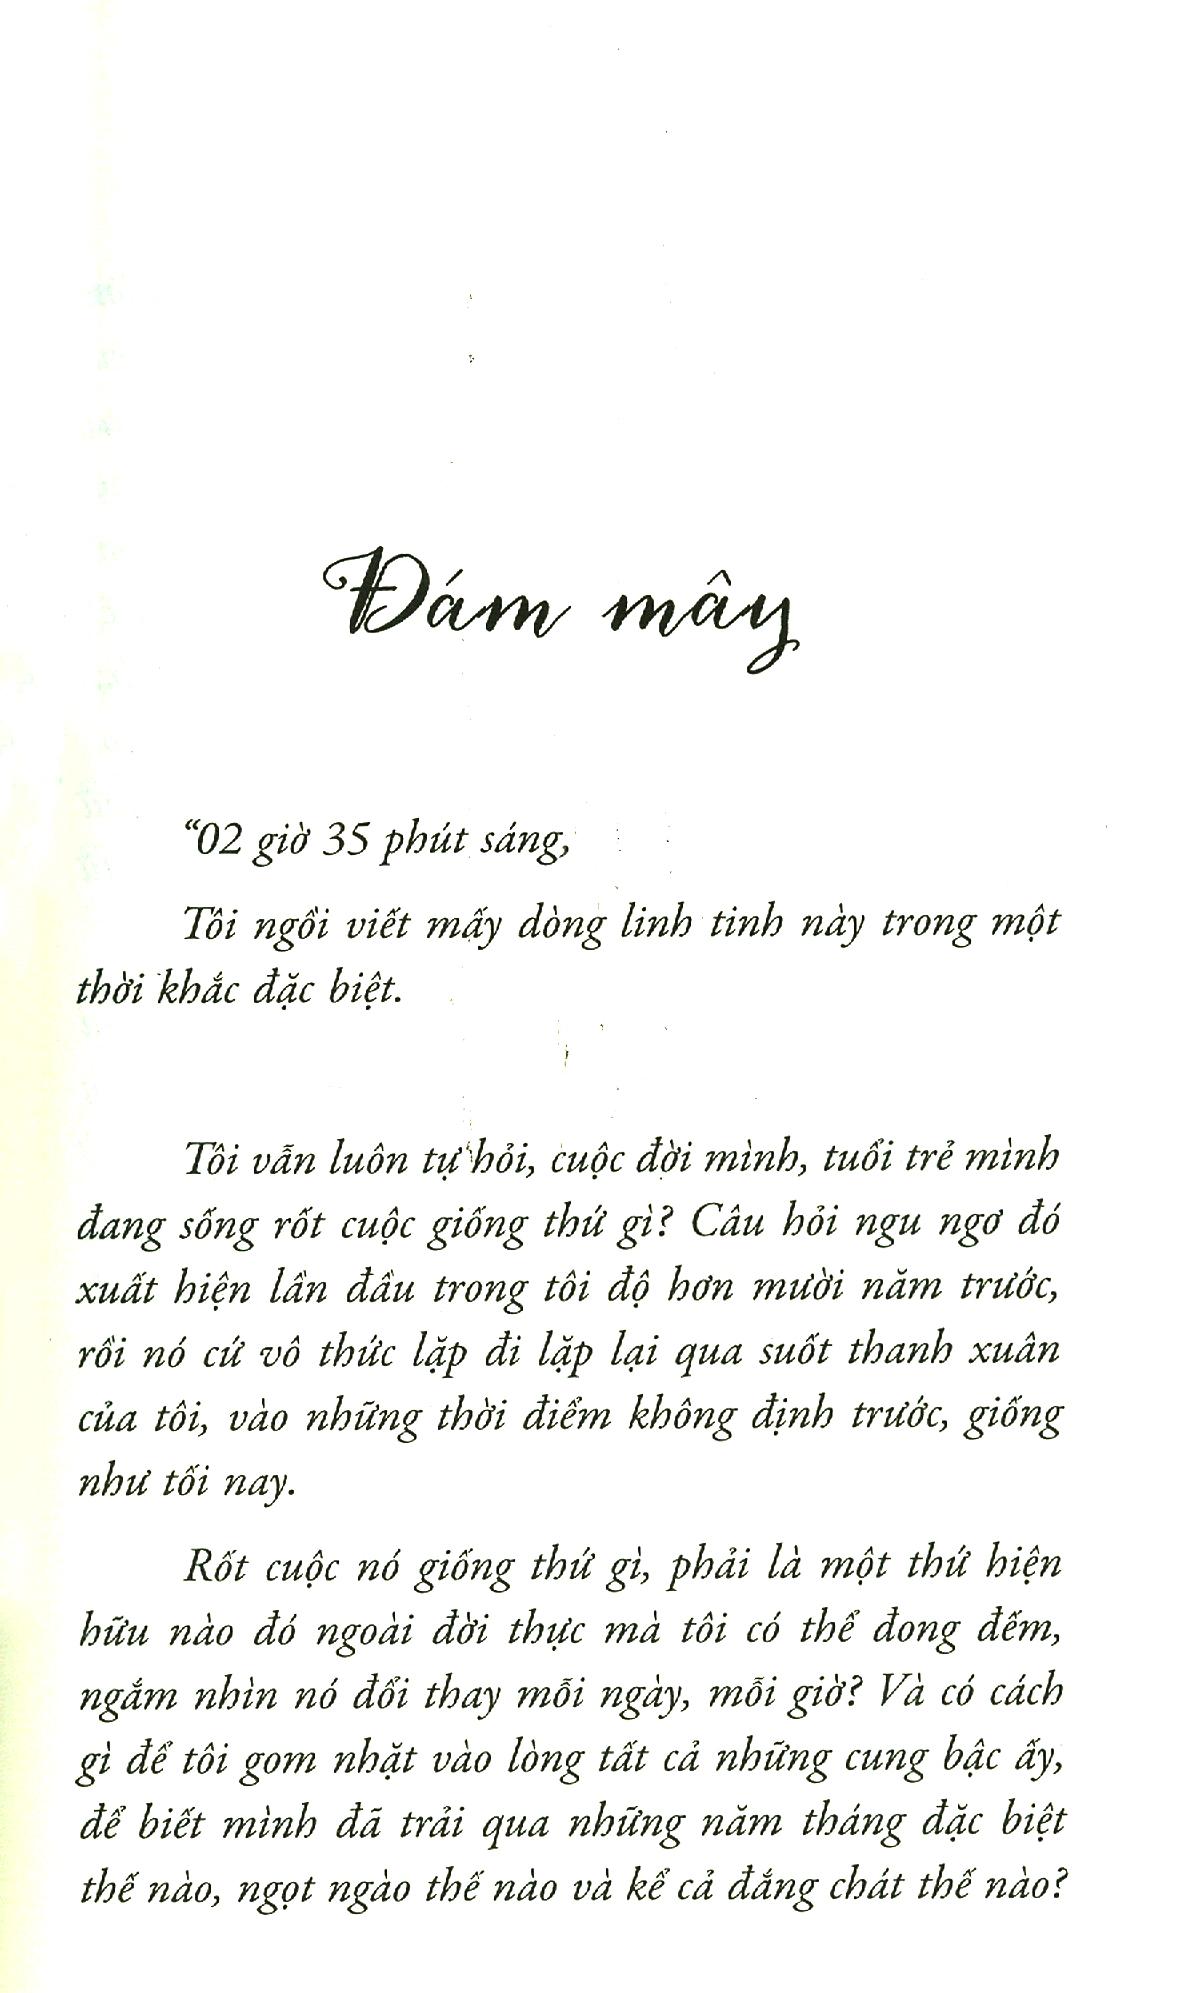 Đám mây
“02 giờ 35 phút sáng,
Tôi ngồi viết mấy dòng linh tinh này trong một
thời khắc đặc biệt.
Tôi vẫn luôn tự hỏi, cuộc đời mình, tuổi trẻ mình
đang sống rốt cuộc giống thứ gì? Câu hỏi ngu ngơ đó
xuất hiện lần đầu trong tôi độ hơn mười năm trước,
rồi nó cứ vô thức lặp đi lặp lại qua suốt thanh xuân
của tôi, vào những thời điểm không định trước, giống
như tối nay.
Rốt cuộc nó giống thứ gì, phải là một thứ hiện
hữu nào đó ngoài đời thực mà tôi có thể đong đếm,
ngắm nhìn nó đổi thay mỗi ngày, mỗi giờ? Và có cách
gì để tôi gom nhặt vào lòng tất cả những cung bậc ấy,
để biết mình đã trải qua những năm tháng đặc biệt
thế nào, ngọt ngào thế nào và kể cả đắng chát thế nào?